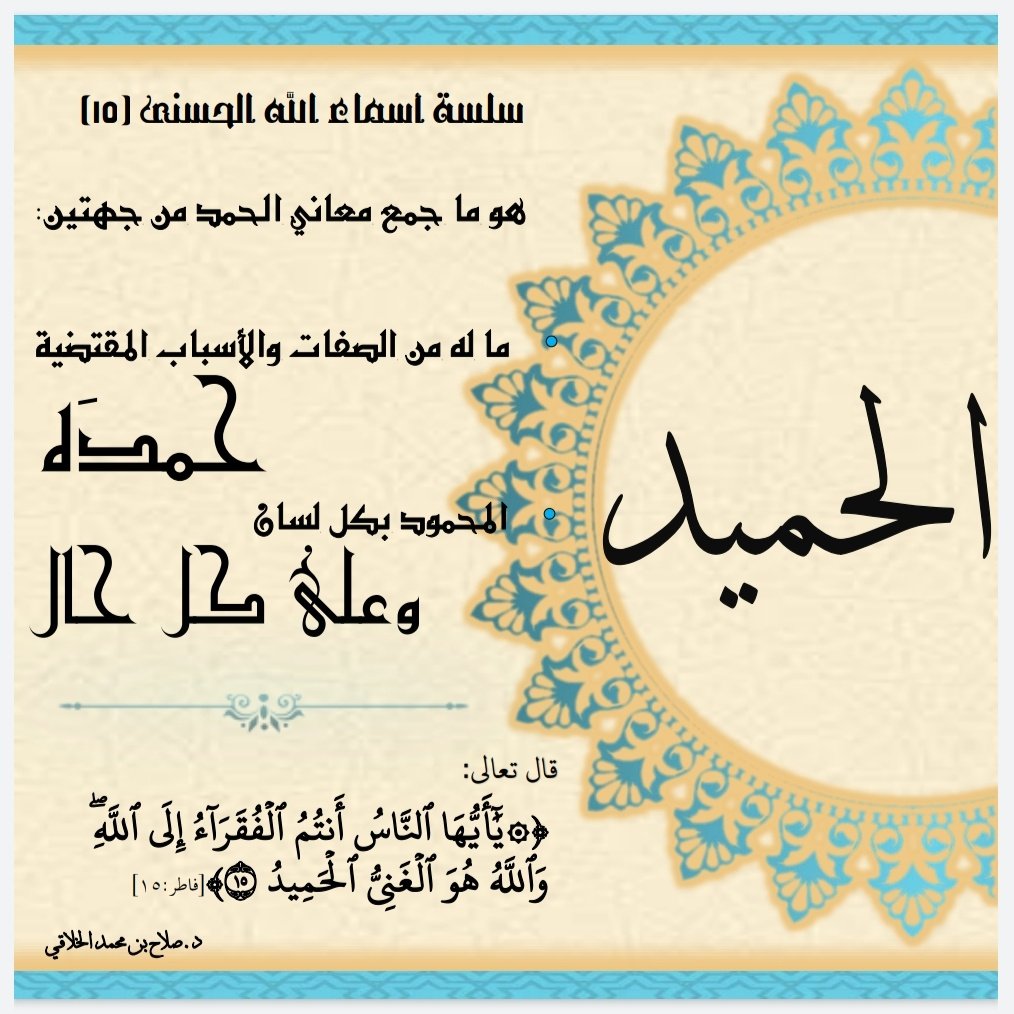 سلسة أسماء الله الحسنى (١٥)
هو ما جمع معاني الحمد من جهتين:
• ما له من الصفات والأسباب المقتضية
حمدَه
• المحمود بكل لسان
وعلى كل حال
الحميد
قال تعالى:
﴿۞ يَٰٓأَيُّهَا ٱلنَّاسُ أَنتُمُ ٱلۡفُقَرَآءُ إِلَى ٱللَّهِۖ
وَٱللَّهُ هُوَ ٱلۡغَنِيُّ ٱلۡحَمِيدُ ١٥﴾ [فاطر:١٥]
د.صلاح بن محمد الخلاقي